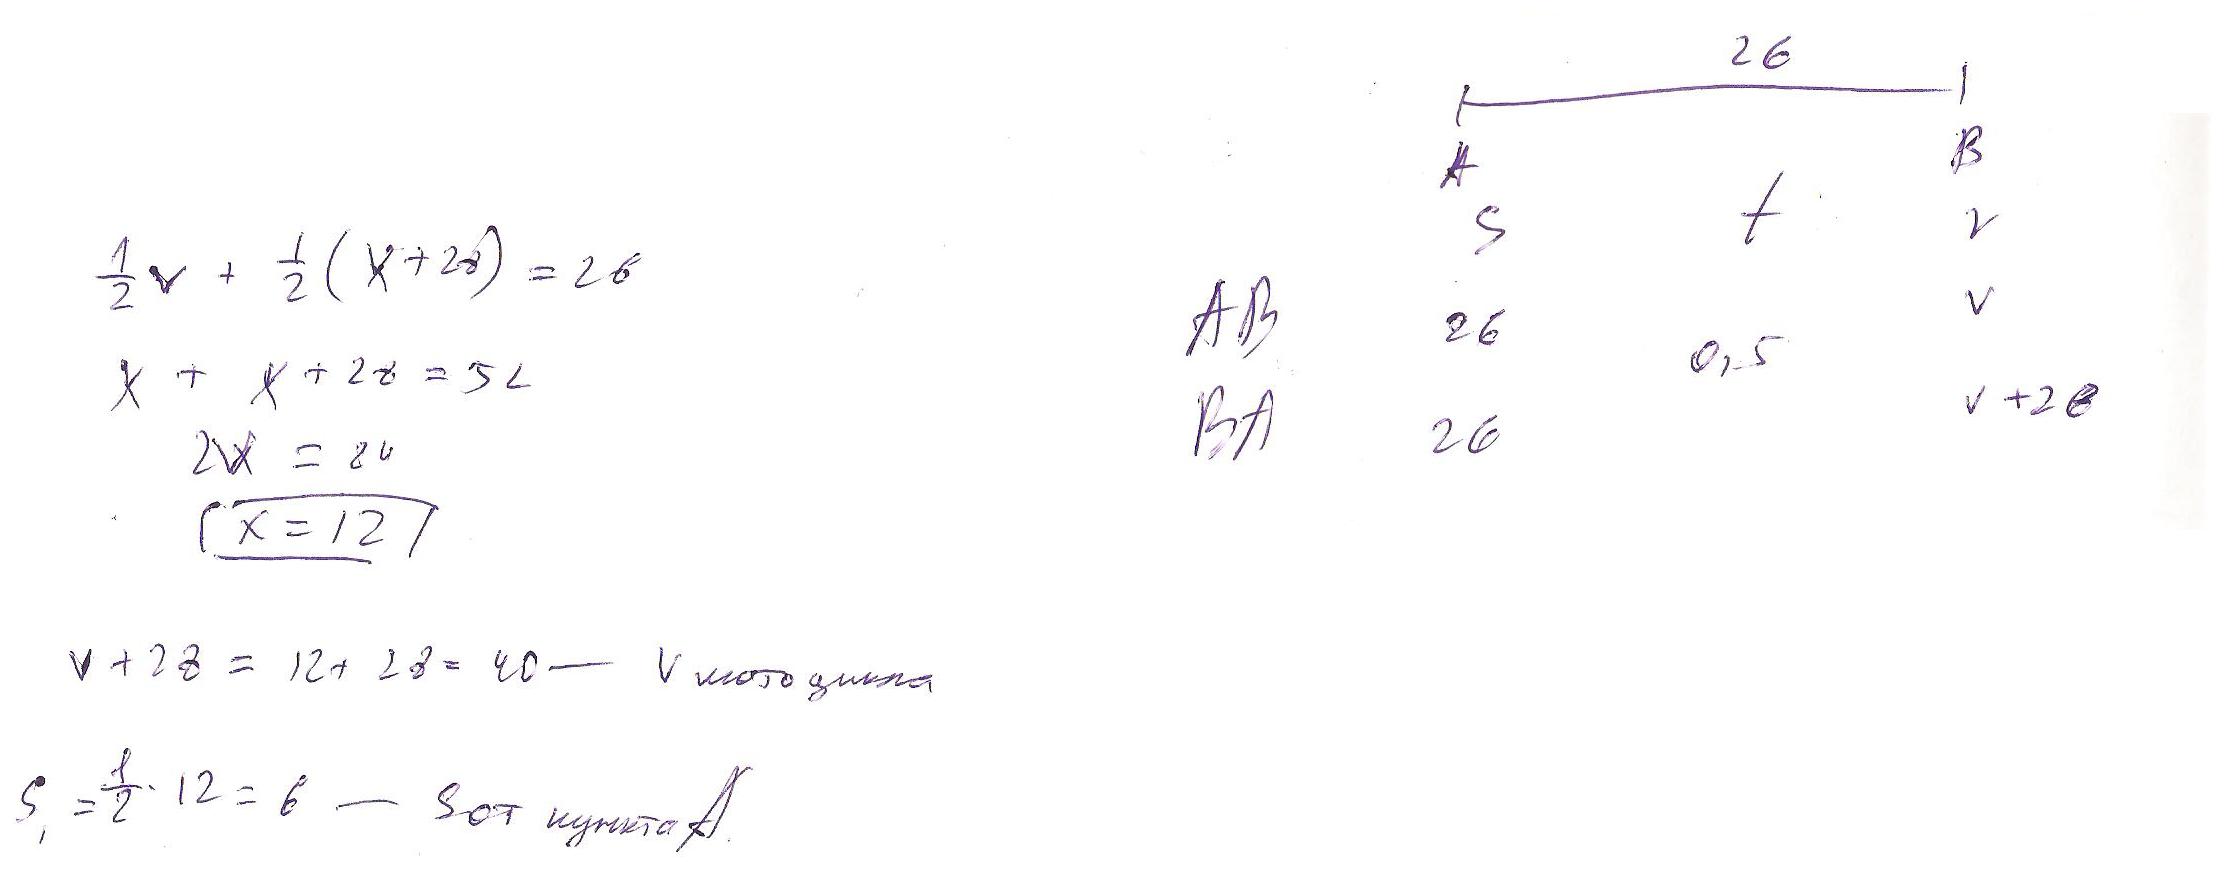 1/2 v + 1/2 (x+28) = 26
x + x+28 = 52
2x = 24
x = 12
v+28 = 12+28 = 40 — v мотоцикла
S₁ = 1/2 · 12 = 6 — S от пункта А.
26
А В
S t v
АВ 26 v
0,5
ВА 26 v+28